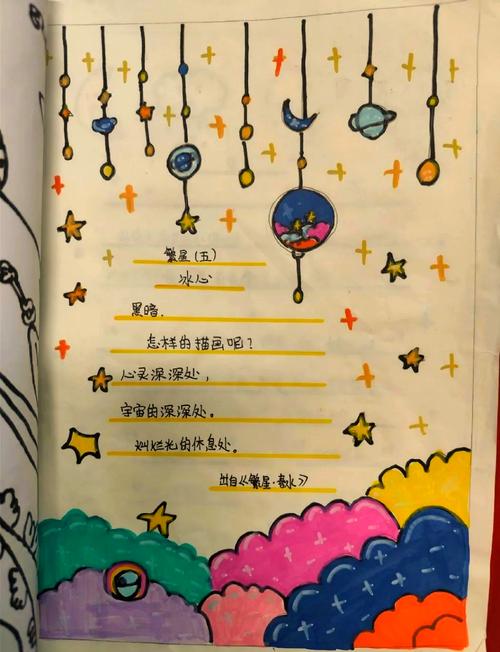 繁星(五)
冰心
黑暗.
怎样的描画呢?
心灵深深处,
宇宙的深深处。
灿烂光的休息处。
出自《繁星·春水》